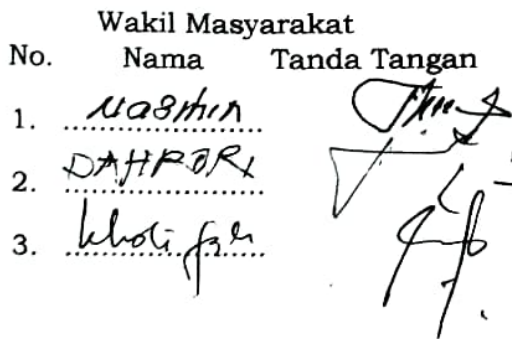 Wakil Masyarakat
No. Nama Tanda Tangan
1. Nasmin
2. DAHRORI
3. kholifah